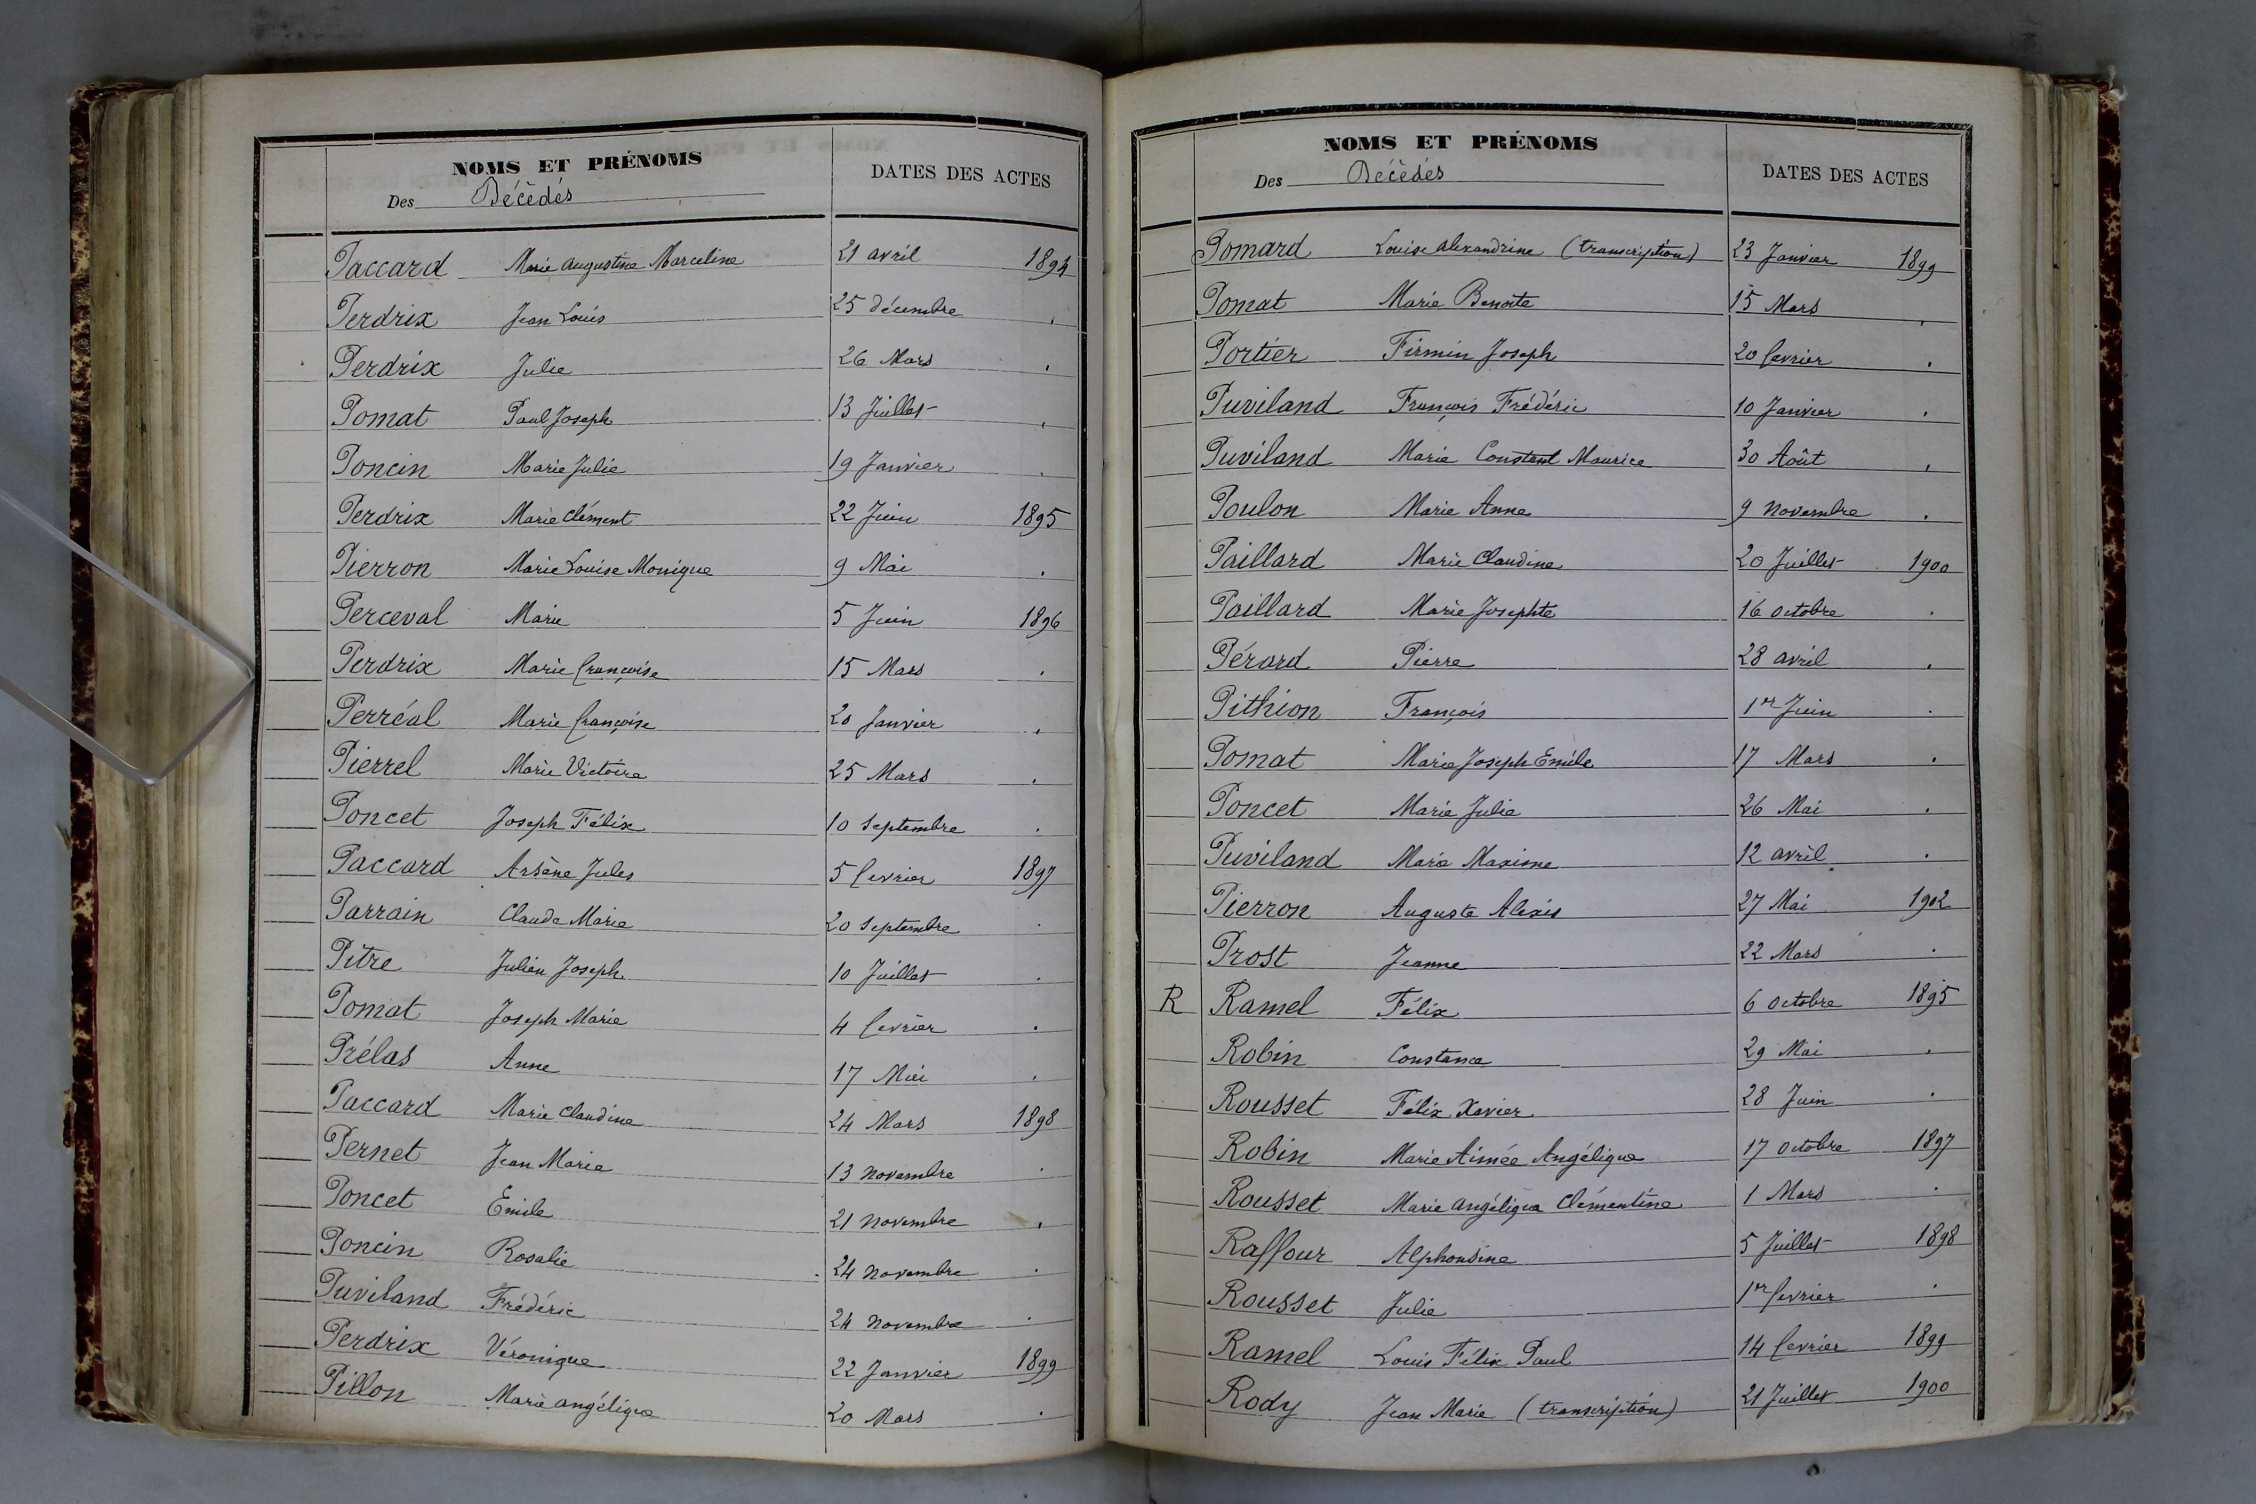 NOMS ET PRÉNOMS
Des Décèdés
DATES DES ACTES
Paccard Marie Augustine Marceline 21 avril 1894
Perdrix Jean Louis 25 décembre .
Perdrix Julie 26 Mars .
Pomat Paul Joseph 13 Juillet .
Poncin Marie Julie 19 Janvier .
Perdrix Marie Clément 22 Juin 1895
Pierron Marie Louise Monique 9 Mai .
Perceval Marie 5 Juin 1896
Perdrix Marie Françoise 15 Mars .
Perréal Marie Françoise 20 Janvier .
Pierrel Marie Victoire 25 Mars .
Poncet Joseph Félix 10 Septembre .
Paccard Arsène Jules 5 fevrier 1897
Parrain Claude Marie 20 Septembre .
Pitre Julien Joseph 10 Juillet .
Pomat Joseph Marie 4 fevrier .
Prélas Anne 17 Mai .
Paccard Marie Claudine 24 Mars 1898
Pernet Jean Marie 13 novembre .
Poncet Emile 21 novembre .
Poncin Rosalie 24 novembre .
Puviland Frédéric 24 novembre .
Perdrix Véronique 22 Janvier 1899
Pillon Marie angélique 20 Mars .
NOMS ET PRÉNOMS
Des Décèdés
DATES DES ACTES
Pomard Louise Alexandrine (transcription) 23 Janvier 1899
Pomat Marie Benoîte 15 Mars .
Portier Firmin Joseph 20 fevrier .
Puviland François Frédéric 10 Janvier .
Puviland Marie Constant Maurice 30 Août .
Poulon Marie Anne 9 novembre .
Paillard Marie Claudine 20 Juillet 1900
Paillard Marie Josephte 16 octobre .
Pérard Pierre 28 avril .
Pithion François 1er Juin .
Pomat Marie Joseph Emile 17 Mars .
Poncet Marie Julie 26 Mai .
Puviland Marie Maxime 12 avril .
Pierron Auguste Alexis 27 Mai 1902
Prost Jeanne 22 Mars .
R Ramel Félix 6 octobre 1895
Robin Constance 29 Mai .
Rousset Félix Xavier 28 Juin .
Robin Marie Aimée Angélique 17 octobre 1897
Rousset Marie angélique Clémentine 1 Mars .
Raffour Alphonsine 5 Juillet 1898
Rousset Julie 1er fevrier .
Ramel Louis Félix Paul 14 fevrier 1899
Rody Jean Marie (transcription) 21 Juillet 1900